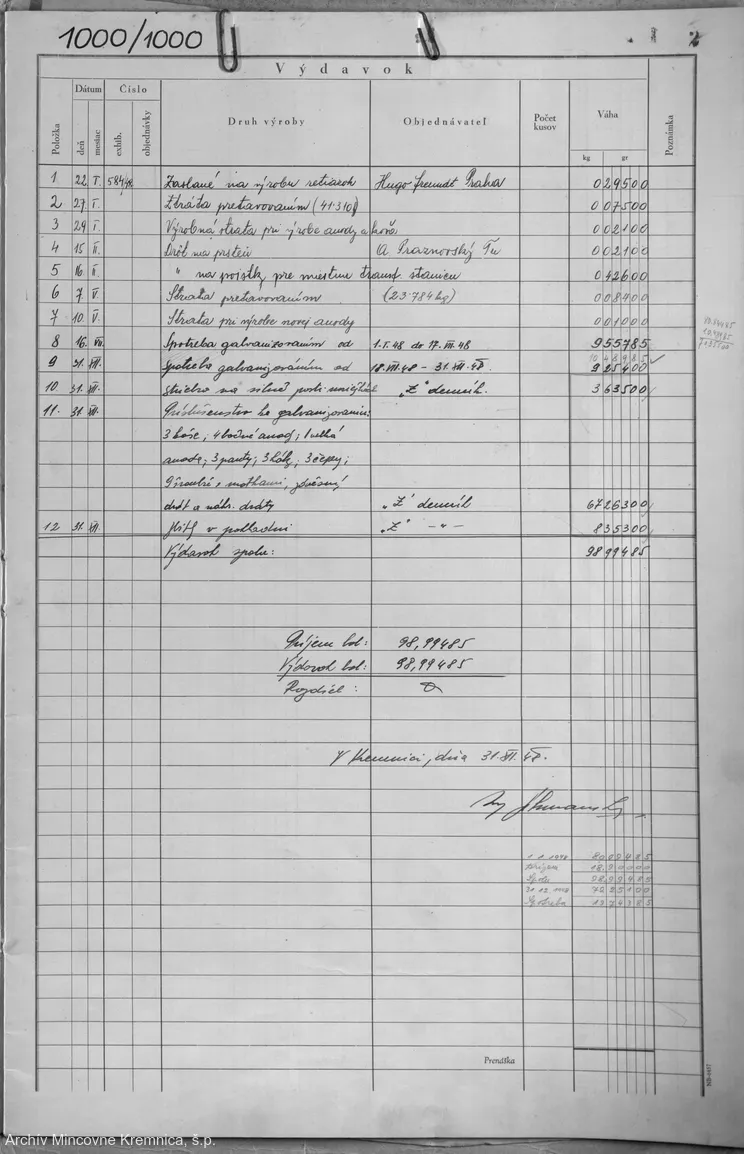 1000/1000
2
Výdavok
Položka Dátum deň mesiac Číslo exhib. objednávky Druh výroby Objednávateľ Počet kusov Váha kg gr Poznámka
1 22. I. 584/48 Zaslané na výrobu retiazok Hugo Freundt Praha 029500
2 27. I. Ztráta pretavovaním (41·310) 007500
3 29 I. Výrobná strata pri výrobe anody a 002100
4 15 II. Drôt na prsteň A. Praznovský Tu 002100
5 16. II. " na poistky pre miestnu transf. stanicu 042600
6 7. V. Strata pretavovaním (23·784 kg) 008400
7 10. V. Strata pri výrobe novej anody 001000
8 16. VII. Spotreba galvanizovaním od 1.I.48 do 17.VII.48 955785
1048985
9 31. XII. Spotreba galvanizovaním od 18.VII.48 – 31.XII.48. 925400
10 31. XII. striebro na "Z" denník. 363500
11. 31. XII. Príslušenstvo ku galvanizovaniu:
3 koše; 4 bočné anody; 1 veľká
anoda; 3 panty; 3 háky; 3 čepy;
9 s matkami, závesný
drôt a náhr. dráty "Z" denník 6726300
12 31. XII. v pokladni "Z" –"– 835300
Výdavok spolu: 9899485
Príjem bol: 98,99485
Výdavok bol: 98,99485
Rozdiel: 0
V Kremnici, dňa 31.XII.48.
1.1.1948 8009485
Príjem 1890000
Spolu 9899485
31.12.1948 7925100
Spotreba 1974385
Prenáška
Archív Mincovne Kremnica, š.p.